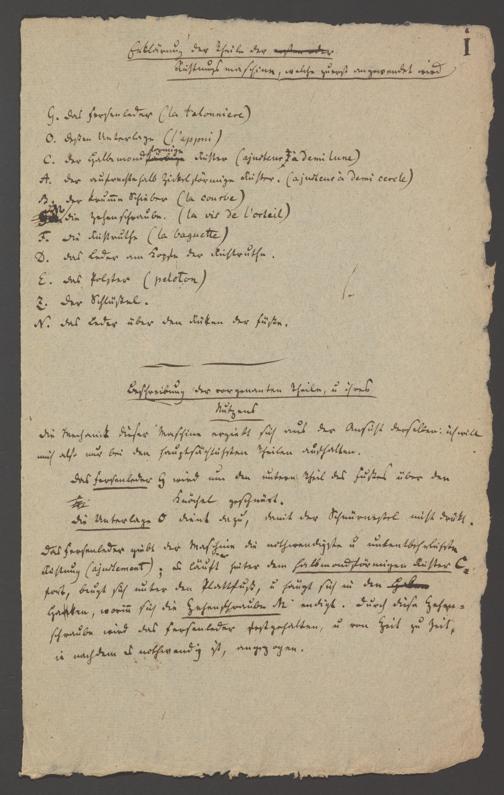 I
Erklärung der Theile der ersten oder
Richtungsmaschine, welche zuerst angewendet wird
G. das Fersenleder (la talonniere)
O. dessen Unterlage (l'appui)
C. der halbmondförmige Richter (ajusteur à demi lune)
A. der aufrechte halb zirkelförmige Richter. (ajusteur à demi cercle)
B. der krumme Schieber (la courbe)
M. die Zehenschraube. (la vis de l'orteil)
F. die Richtruthe (la baguette)
D. das Leder am Kopfe der Richtruthe.
E. das Polster (peloton)
Z. der Schlüssel.
N. das Leder über den Rücken der Füße.
Beschreibung der vorgenanten Theile, u ihres
Nutzens
Die Mechanik dieser Maschine ergiebt sich aus der Ansicht derselben: ich will
mich also nur bei den hauptsächlichsten Theilen aufhalten.
Das Fersenleder G wird um den untern Theil des Fußes über den
Knöchel geschnürt.
die Unterlage O dient dazu, damit der Schnürnestel nicht drückt.
Das Fersenleder giebt der Maschine die nothwendigste u unentbehrlichste
Richtung (ajustement); es läuft hinter dem halbmondförmigen Richter C.
fort, beugt sich unter den Plattfuß, u hängt sich in den
Haken, worin sich die Zehenschraube M endigt. Durch diese Zehen-
schraube wird das Fersenleder festgehalten, u von Zeit zu Zeit,
je nachdem es nothwendig ist, angezogen.